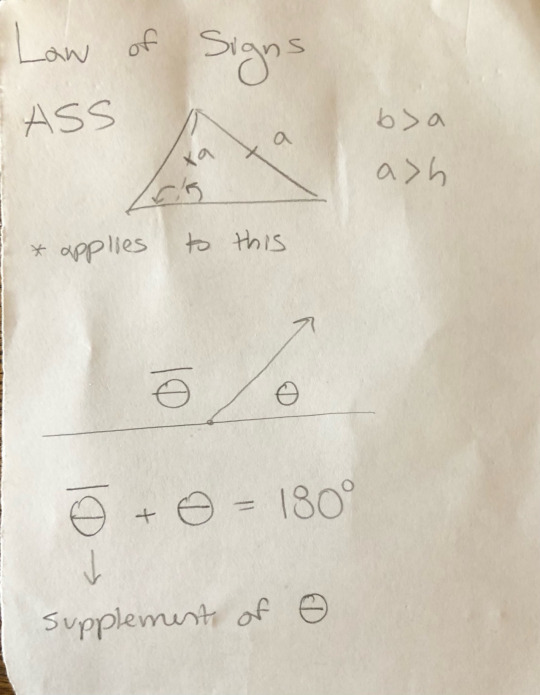 Law of Signs
ASS
a
a
b>a
a>h
* applies to this
Θ̅ Θ
Θ̅ + Θ = 180°
↓
supplement of Θ